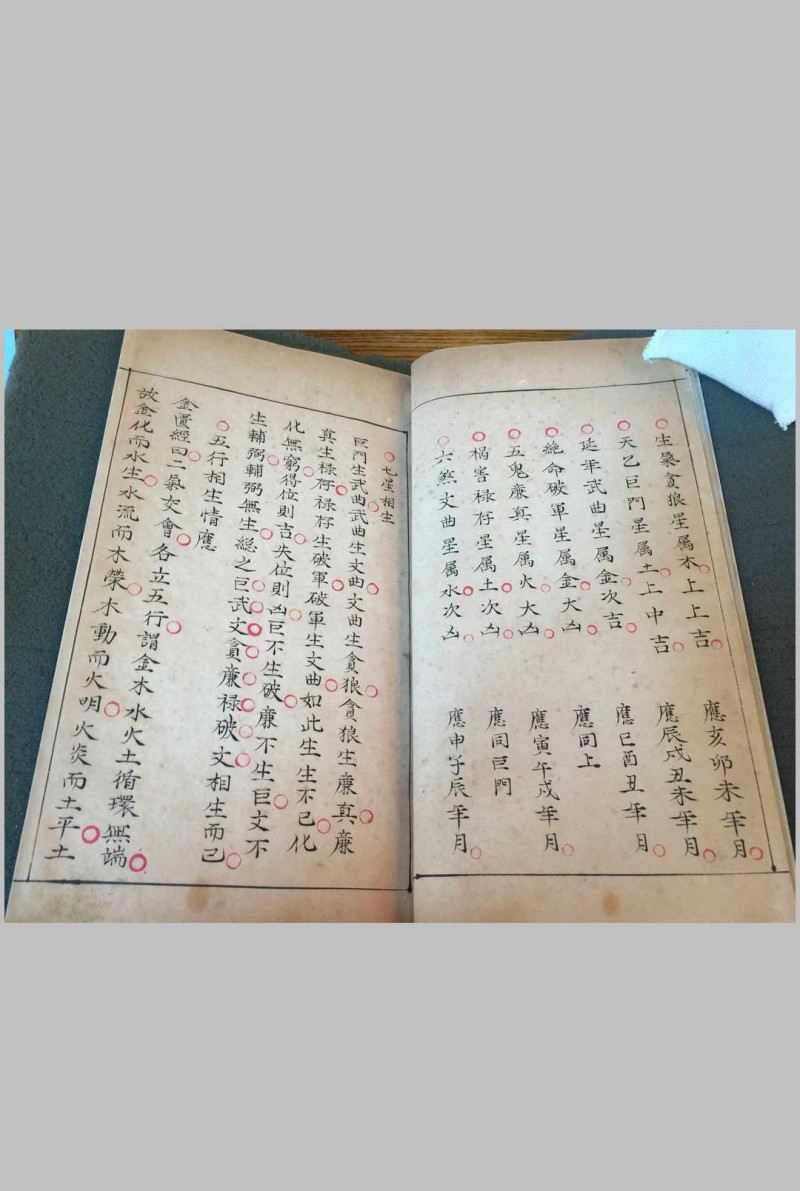 生氣貪狼星属木上上吉 應亥卯未年月
天乙巨門星属土上中吉 應辰戌丑未年月
延年武曲星属金次吉 應巳酉丑年月
絶命破軍星属金大凶 應同上
五鬼廉真星属火大凶 應寅午戌年月
禍害禄存星属土次凶 應同巨門
六煞文曲星属水次凶 應申子辰年月
七星相生
巨門生武曲武曲生文曲文曲生貪狼貪狼生廉真廉
真生禄存禄存生破軍破軍生文曲如此生生不已化
化無窮得位則吉失位則凶巨不生破廉不生巨文不
生輔弼輔弼無生總之巨武文貪廉禄破文相生而已
五行相生情應
金匱經曰二氣交會各立五行謂金木水火土循環無端
故金化而水生水流而木榮木動而火明火炎而土平土